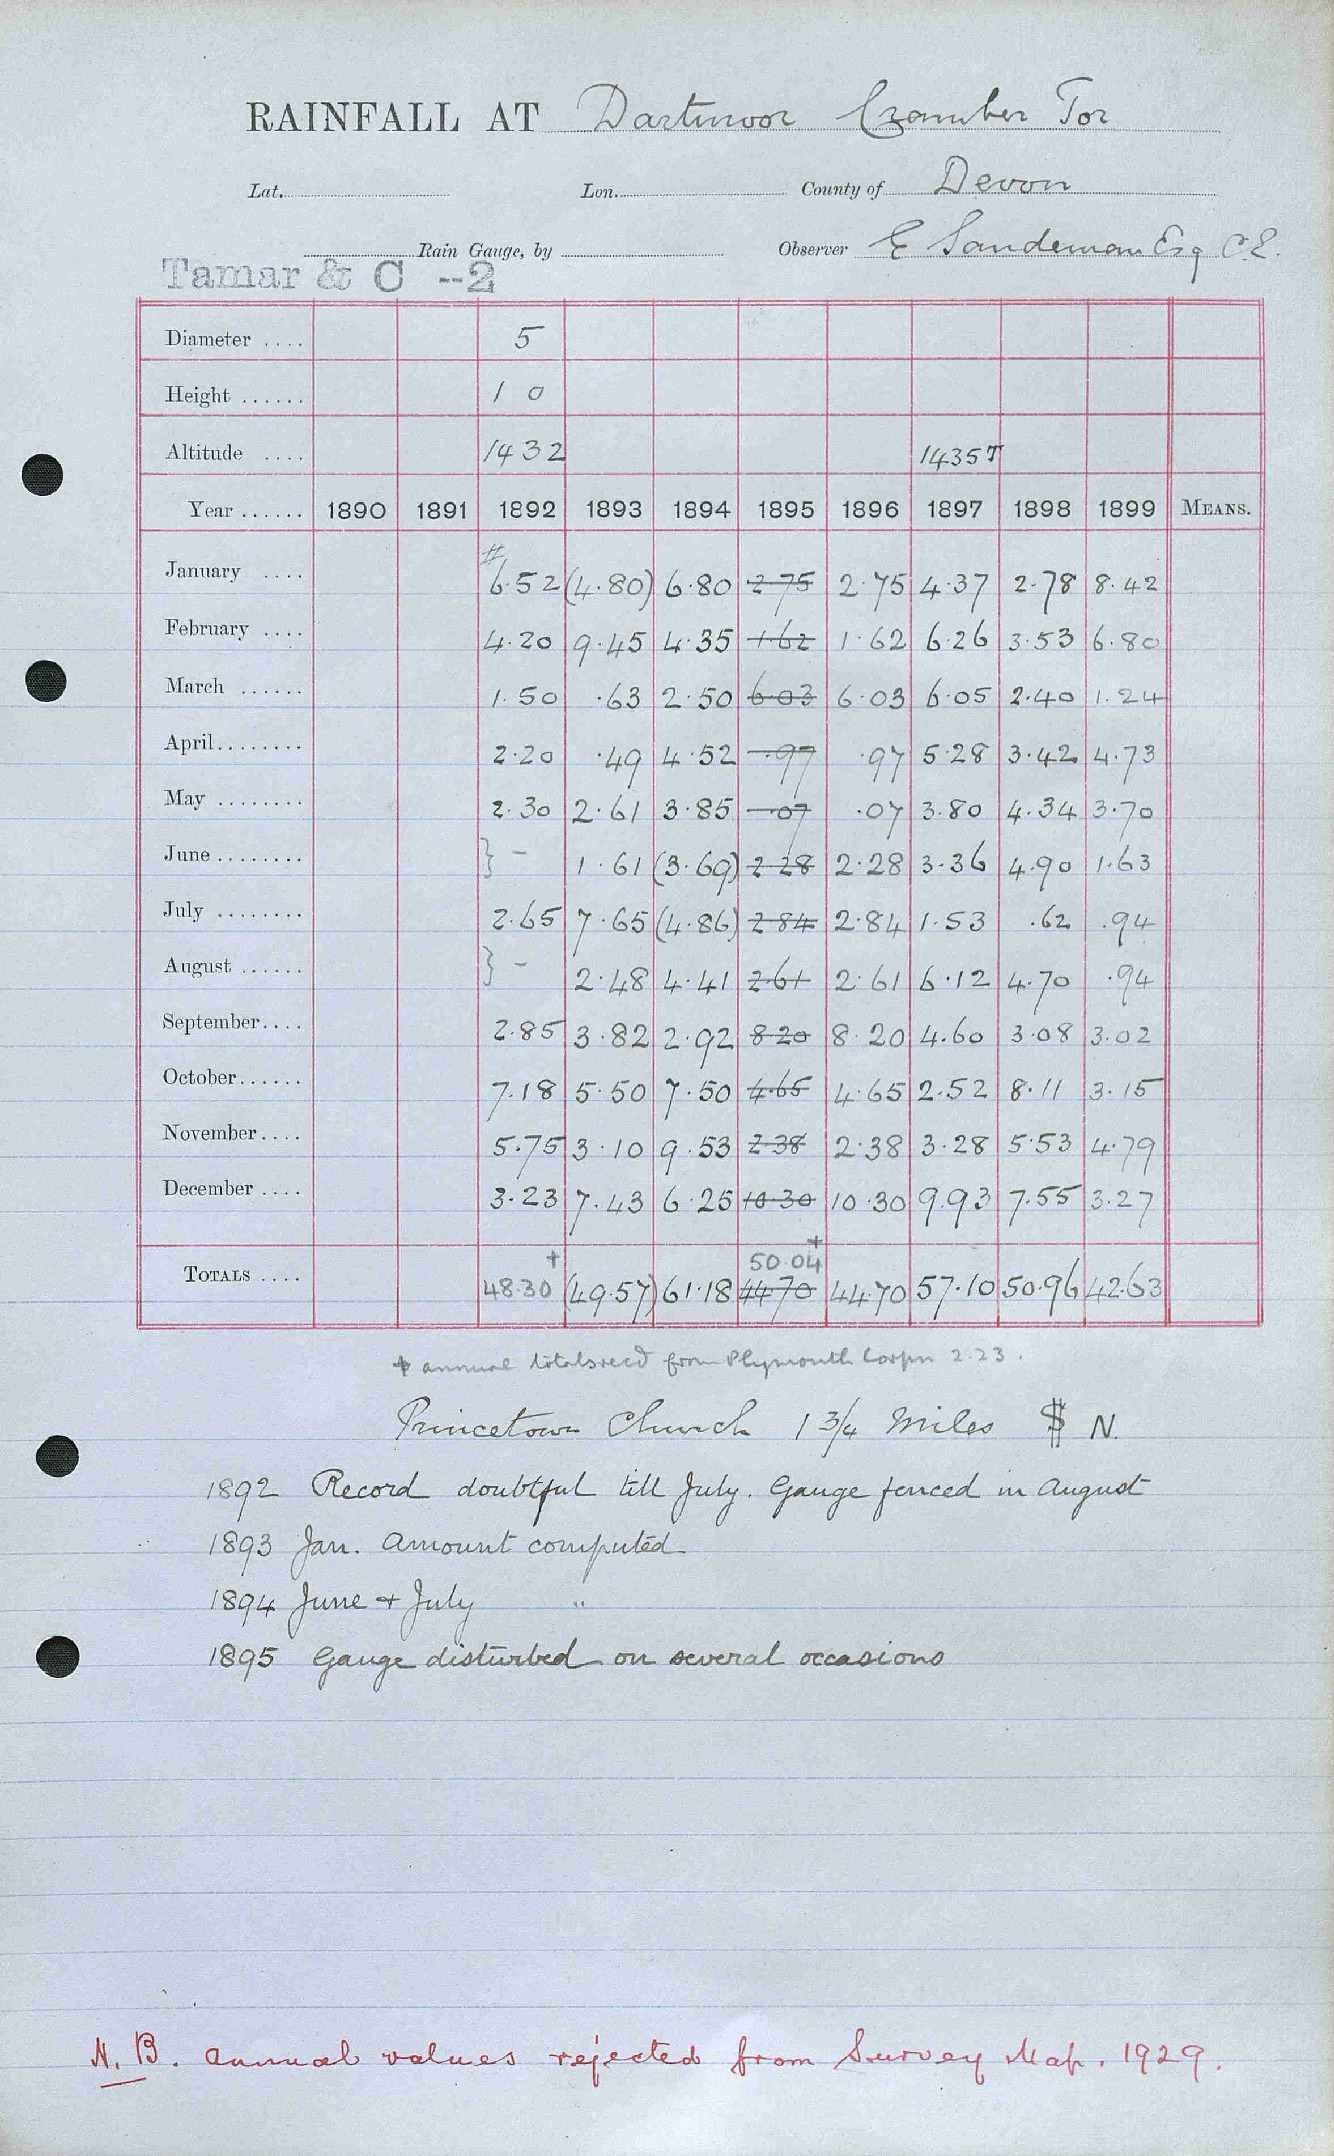 RAINFALL AT Dartmoor Cramber Tor
Lat. Lon. County of Devon
Rain Gauge, by Observer E Sandeman Esq C.E.
Tamar & C --2
Diameter .... 5
Height ...... 1 0
Altitude .... 1432 1435T
Year ...... 1890 1891 1892 1893 1894 1895 1896 1897 1898 1899 MEANS.
#
January .... 6.52 (4.80) 6.80 2.75 2.75 4.37 2.78 8.42
February .... 4.20 9.45 4.35 1.62 1.62 6.26 3.53 6.80
March ...... 1.50 .63 2.50 6.03 6.03 6.05 2.40 1.24
April ........ 2.20 .49 4.52 .97 .97 5.28 3.42 4.73
May ........ 2.30 2.61 3.85 .07 .07 3.80 4.34 3.70
June ........ } - 1.61 (3.69) 2.28 2.28 3.36 4.90 1.63
July ........ 2.65 7.65 (4.86) 2.84 2.84 1.53 .62 .94
August ...... } - 2.48 4.41 2.61 2.61 6.12 4.70 .94
September.... 2.85 3.82 2.92 8.20 8.20 4.60 3.08 3.02
October...... 7.18 5.50 7.50 4.65 4.65 2.52 8.11 3.15
November.... 5.75 3.10 9.53 2.38 2.38 3.28 5.53 4.79
December .... 3.23 7.43 6.25 10.30 10.30 9.93 7.55 3.27
† 50.04 †
TOTALS .... 48.30 (49.57) 61.18 44.70 44.70 57.10 50.96 42.63
† annual totals recd from Plymouth Corpn 2.23.
Princetown Church 1 3/4 Miles N.
1892 Record doubtful till July. Gauge fenced in August
1893 Jan. Amount computed
1894 June + July "
1895 Gauge disturbed on several occasions
N.B. annual values rejected from Survey Map. 1929.